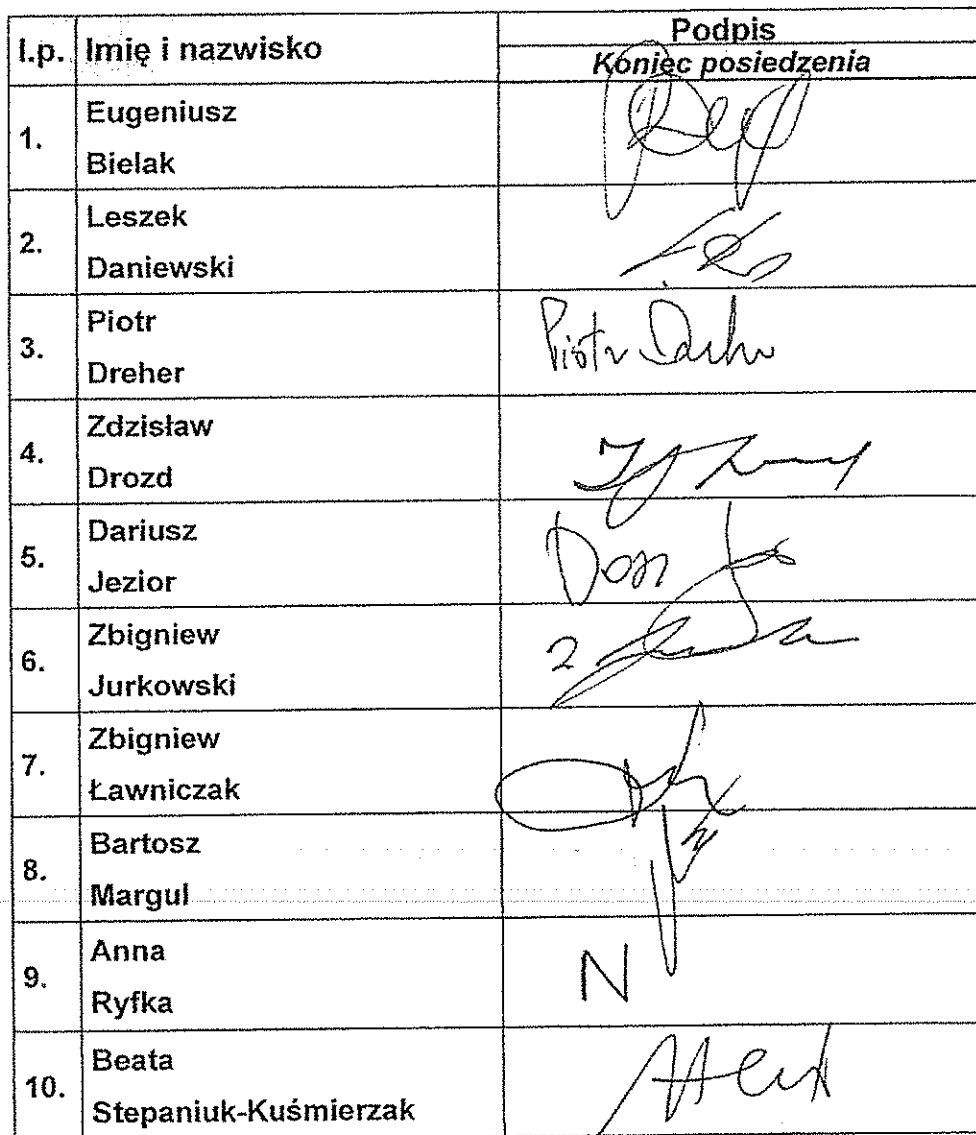 l.p. Imię i nazwisko Podpis
Koniec posiedzenia
1. Eugeniusz
Bielak
2. Leszek
Daniewski
3. Piotr
Dreher
Piotr
4. Zdzisław
Drozd
5. Dariusz
Jezior
6. Zbigniew
Jurkowski
7. Zbigniew
Ławniczak
8. Bartosz
Margul
9. Anna
Ryfka
N
10. Beata
Stepaniuk-Kuśmierzak